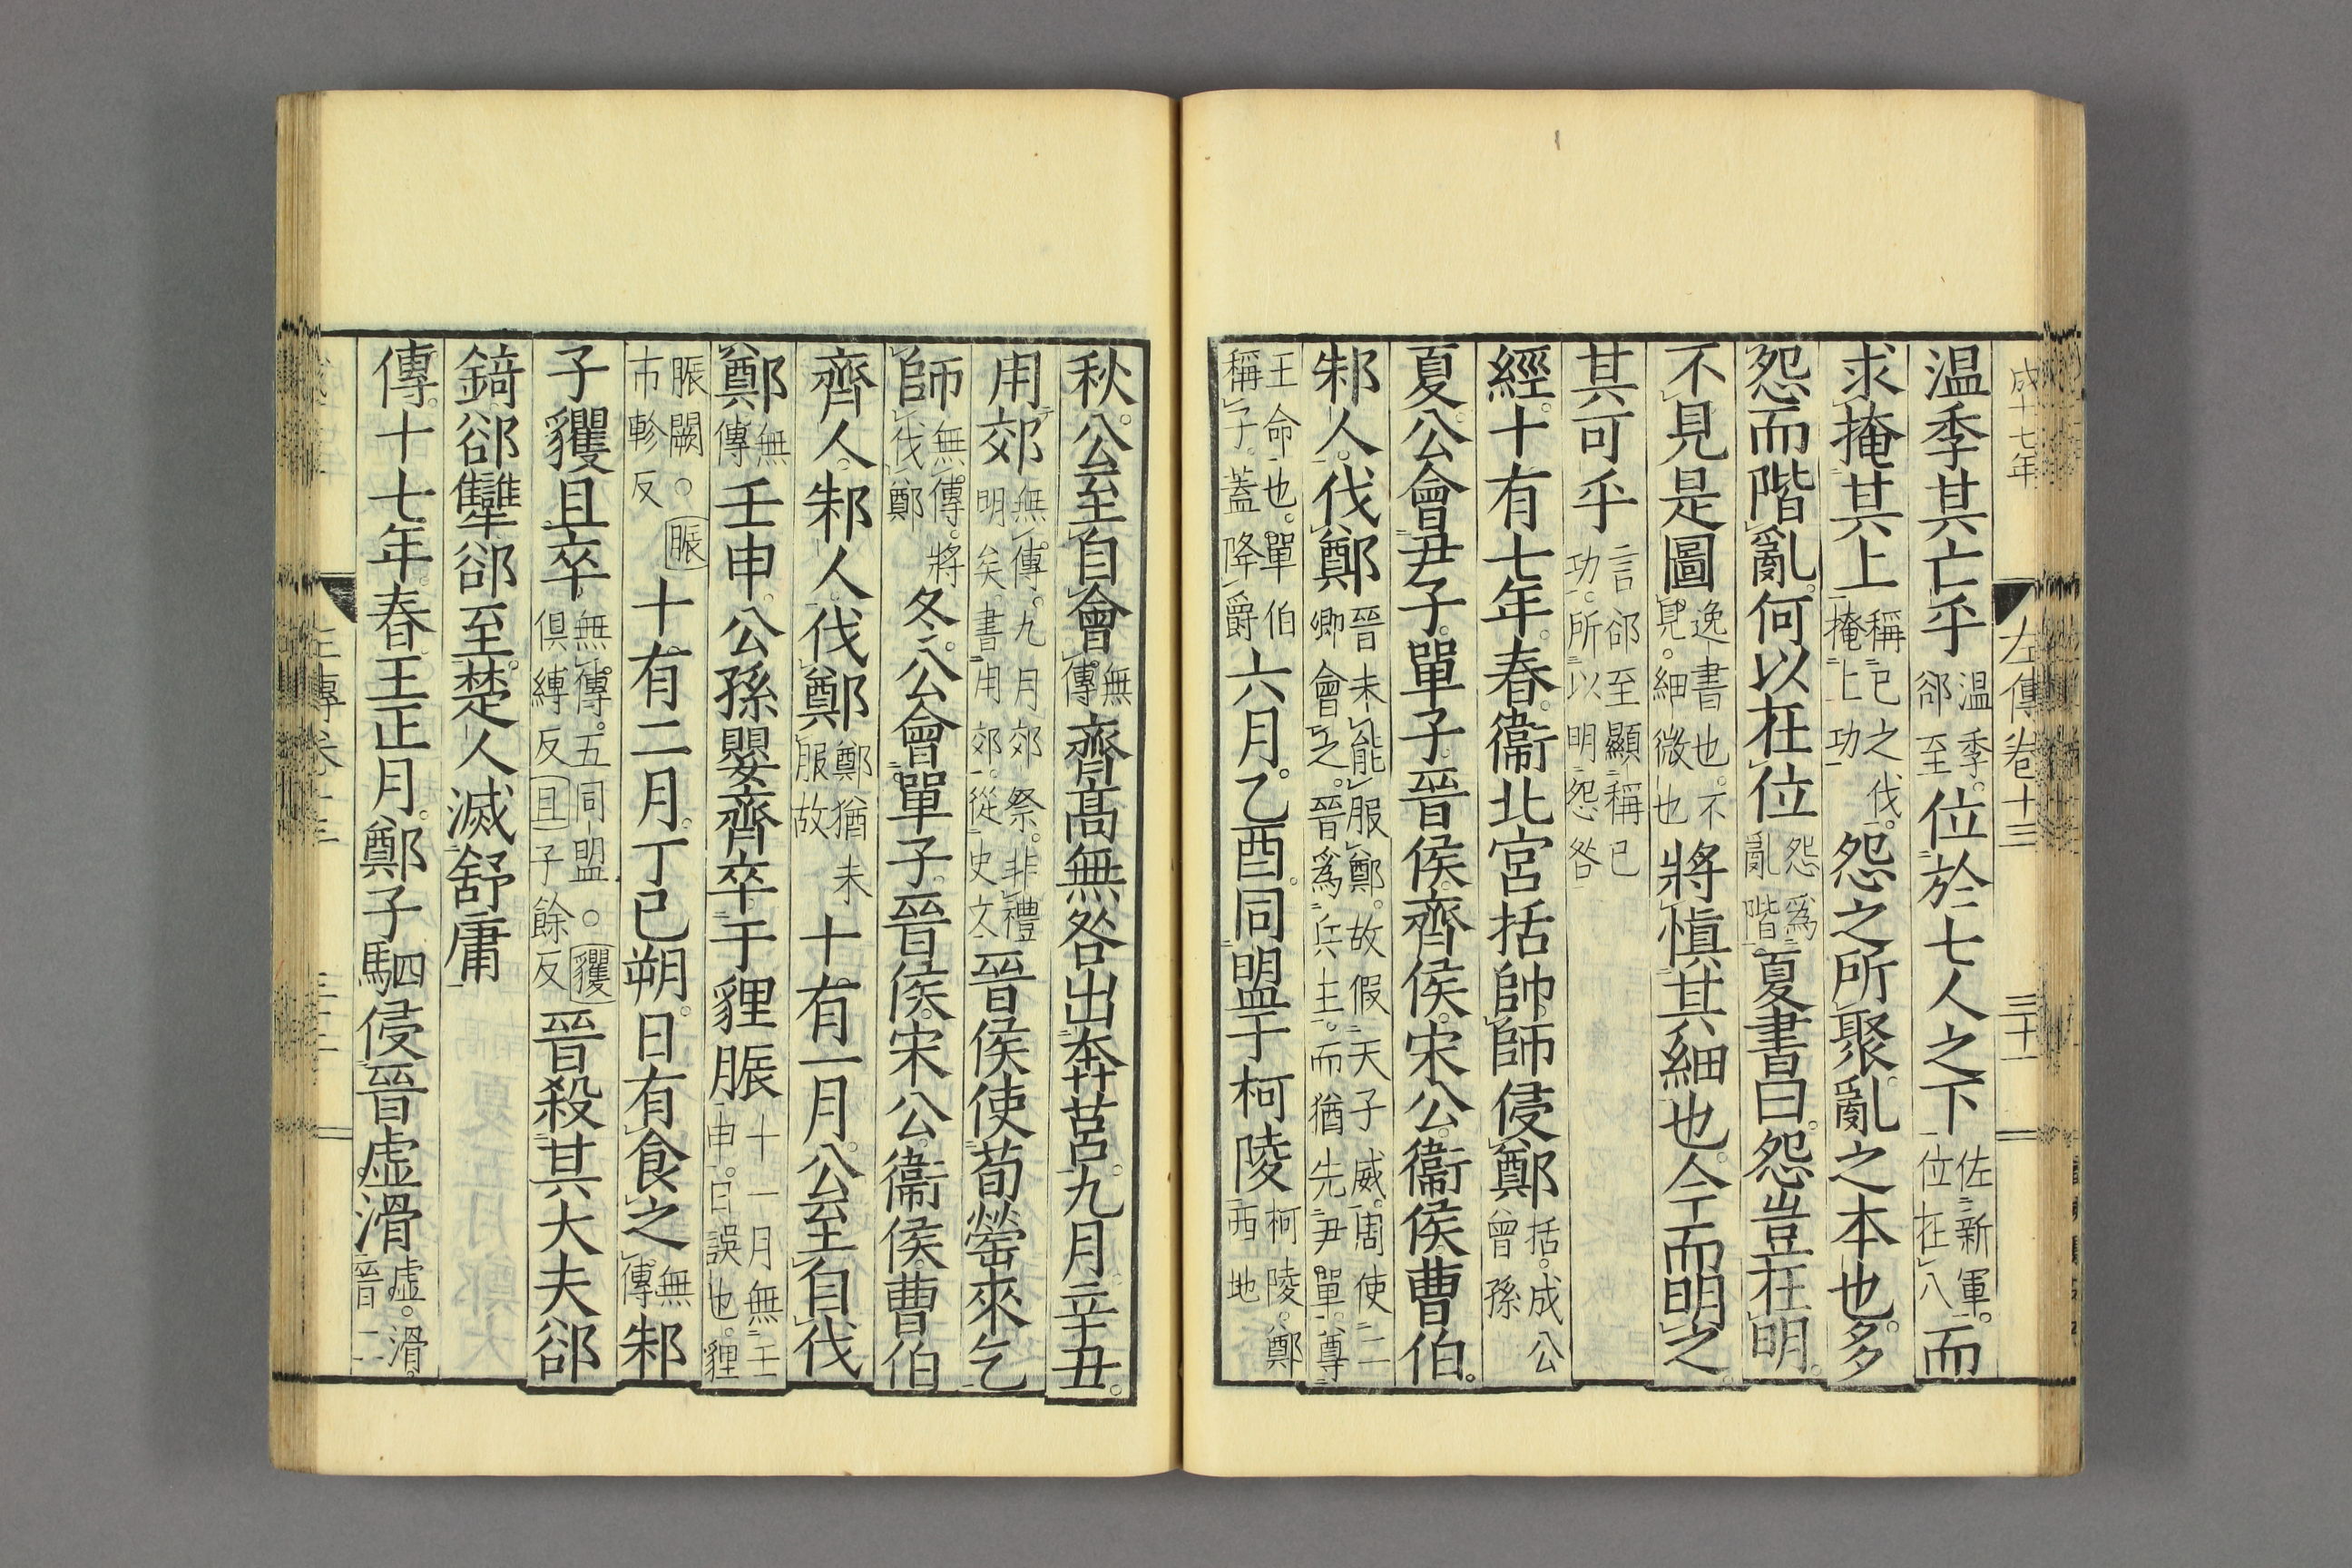 成十七年　左傳卷十三　三十一
温季其亡乎温季。郤至位於七人之下佐新軍。位在八而
求掩其上稱己之伐。掩上功怨之所聚。亂之本也。多
怨而階亂。何以在位怨爲亂階。夏書曰。怨豈在明。
不見是圖逸書也。不見。細微也將愼其細也。今而明之
其可乎言郤至顯稱己功。所以明怨咎
經。十有七年。春。衞北宮括帥師侵鄭括。成公曾孫
夏。公會尹子。單子。晉侯。齊侯。宋公。衞侯。曹伯。
邾人。伐鄭晉未能服鄭。故假天子威。周使二卿會之。晉爲兵主。而猶先尹單。尊
王命也。單伯稱子。蓋降爵六月。乙酉。同盟于柯陵柯陵。鄭西地
秋。公至自會無傳。齊高無咎出奔莒。九月。辛丑。
用郊無傳。九月郊祭。非禮明矣。書用郊。從史文晉侯使荀罃來乞
師無傳。將伐鄭冬。公會單子。晉侯。宋公。衞侯。曹伯
齊人。邾人。伐鄭鄭猶未服故十有一月。公至自伐
鄭無傳壬申。公孫嬰齊卒于貍脤十一月無壬申。日誤也。貍
脤闕。○脤市軫反十有二月。丁巳朔。日有食之無傳邾
子貜且卒無傳。五同盟。○貜俱縛反且子餘反晉殺其大夫郤
錡。郤犨。郤至。楚人滅舒庸
傳。十七年。春。王正月。鄭子駟侵晉虛滑虛。滑。晉二